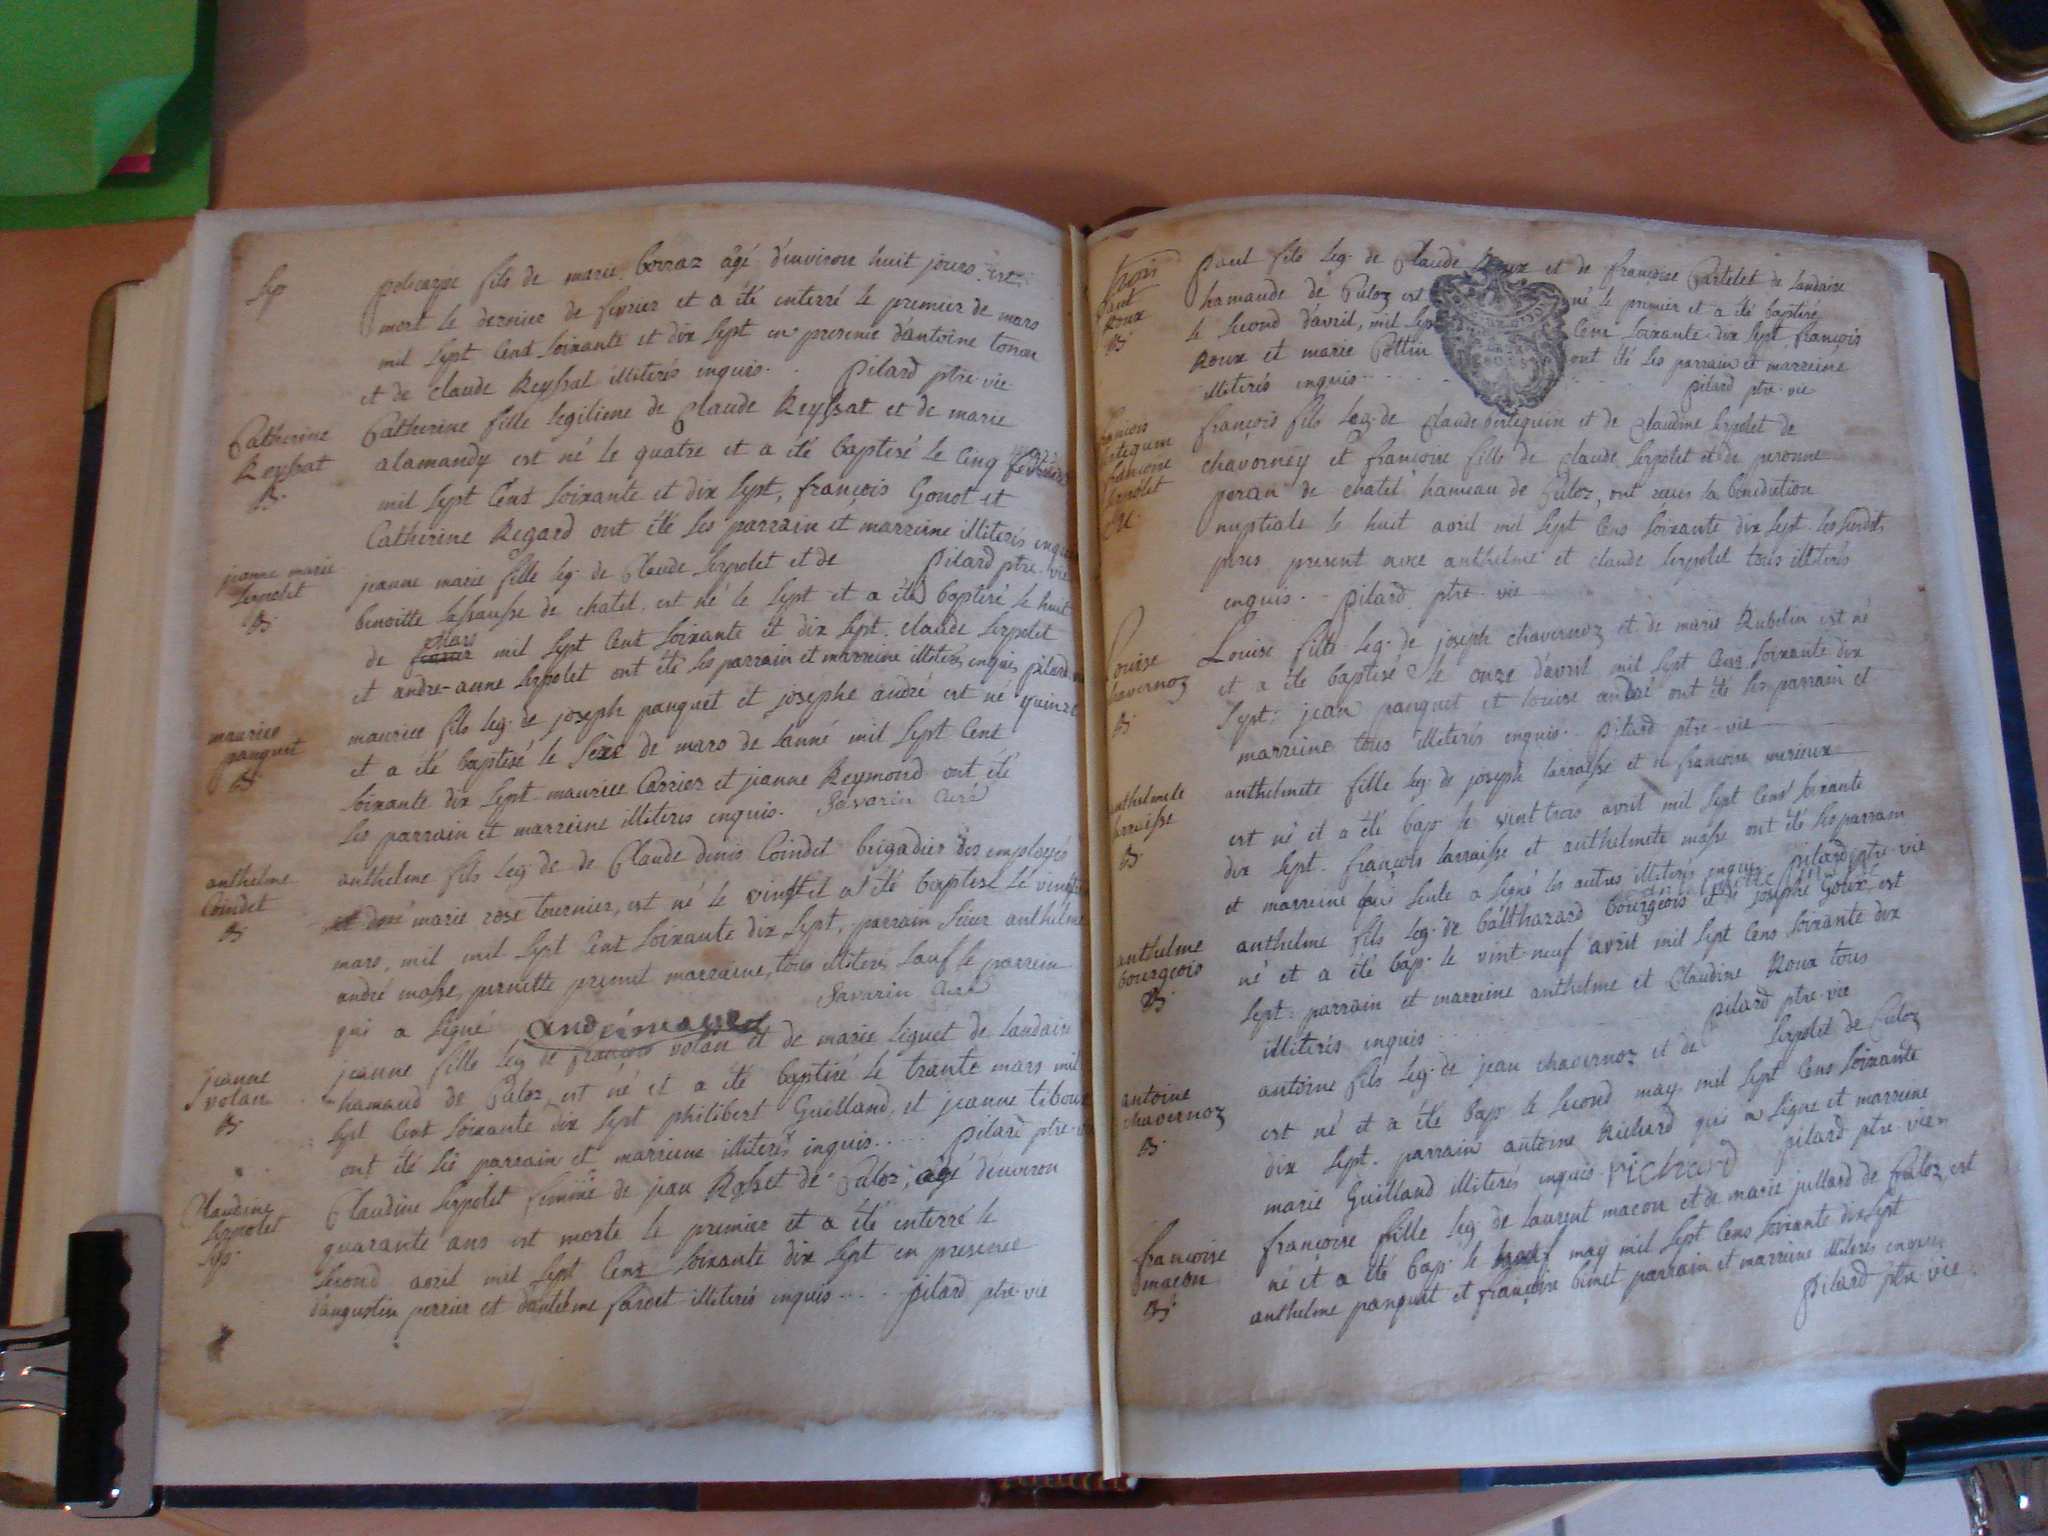 Sep
policarpe fils de marie Borraz âgé d'environ huit jours est
mort le dernier de fevrier et a été enterré le premier de mars
mil sept cent soixante et dix sept en presence d'antoine tonau
et de claude Reyssat illiterés enquis. Pilard ptre vic
Catherine
Reyssat
B.
Catherine fille legitime de Claude Reyssat et de marie
alamandy est né le quatre et a été baptisé le cinq
mil sept cent soixante et dix sept, françois Gonot et
Catherine Regard ont été les parrain et marreine illiterés enquis
Pilard ptre vic
jeanne marie
Serpolet
B.
jeanne marie fille leg. de Claude Serpolet et de
benoitte de chatel, est né le sept et a été baptisé le huit
mars
de mil sept cent soixante et dix sept. claude Serpolet
et andre-anne Serpolet ont été les parrain et marreine illiterés enquis pilard
maurice
panguet
B.
maurice fils leg. de joseph panguet et josephe andré est né quinze
et a été baptisé le seze de mars de lanné mil sept cent
soixante dix sept maurice Carrier et jeanne Reymond ont été
les parrain et marreine illiteres enquis. Savarin curé
anthelme
Coindet
B.
anthelme fils leg. de de Claude denis Coindet brigadier des employés
marie rose tournier, est né le vingt et a été baptisé le vingt
mars, mil mil sept cent soixante dix sept, parrain sieur anthelme
andré masse, pernette premil marraine, tous illiterés sauf le parrein
qui a signé Savarin curé
jeanne
volan
B.
jeanne fille leg. de françois volan et de marie seguet de landaise
hamaud de Culoz, est né et a été baptisé le trante mars mil
sept cent soixante dix sept philibert Guilland, et jeanne tiboux
ont été les parrain et marreine illiterés enquis..... pilard ptre
Claudine
Serpolet
Sep.
Claudine Serpolet femme de jean Rosset de Culoz, âgé d'environ
quarante ans est morte le premier et a été enterré le
second avril mil sept cent soixante dix sept en presence
d'augustin perrier et d'anthelme fardet illiterés enquis.... pilard ptre vic
Paul
Roux
B.
Paul fils leg. de Claude Roux et de françoise Partelet de landaise
hamaude de Culoz est né le premier et a été baptisé
le second d'avril, mil sept cent soixante dix sept françois
Roux et marie Pottin ont été les parrain et marreine
illiterés enquis pilard ptre vic
françois
berlequin
françoise
Serpolet
M.
françois fils leg. de Claude berlequin et de Claudine Serpolet de
chavorney et françoise fille de Claude Serpolet et de peronne
peran de chatel hameau de Culoz, ont reçus la benediction
nuptiale le huit avril mil sept cens soixante dix sept. les susdits
peres present avec anthelme et claude Serpolet tous illiterés
enquis. pilard ptre vic
Louise
chavernoz
B.
Louise fille leg. de joseph chavernoz et de marie Rubelin est né
et a été baptisé le onze d'avril mil sept cens soixante dix
sept: jean panguet et louise andré ont été les parrain et
marreine tous illiterés enquis. pilard ptre vic
anthelmete
larraisse
B.
anthelmete fille leg. de joseph larraisse et françoise merieux
est né et a été bap. le vint trois avril mil sept cens soixante
dix sept. françois larraisse et anthelmete masse ont été les parrain
et marreine seule a signé les autres illiterés enquis. pilard ptre vic
anthelme
bourgeois
B.
anthelme fils leg. de balthazard bourgeois et josephe Goux, est
né et a été bap. le vint neuf avril mil sept cens soixante dix
sept: parrain et marreine anthelme et Claudine Roux tous
illiterés enquis pilard ptre vic
antoine
chavernoz
B.
antoine fils leg. de jean chavernoz et de Serpolet de Culoz
est né et a été bap. le second may mil sept cens soixante
dix sept. parrain antoine Richard qui a signe et marreine
marie Guilland illiterés enquis Richard pilard ptre vic
françoise
macon
B.
françoise fille leg. de laurent macon et de marie jullard de Culoz, est
né et a été bap. le may mil sept cens soixante dix sept
anthelme panguet et françoise binet parrain et marreine illiterés enquis
pilard ptre vic